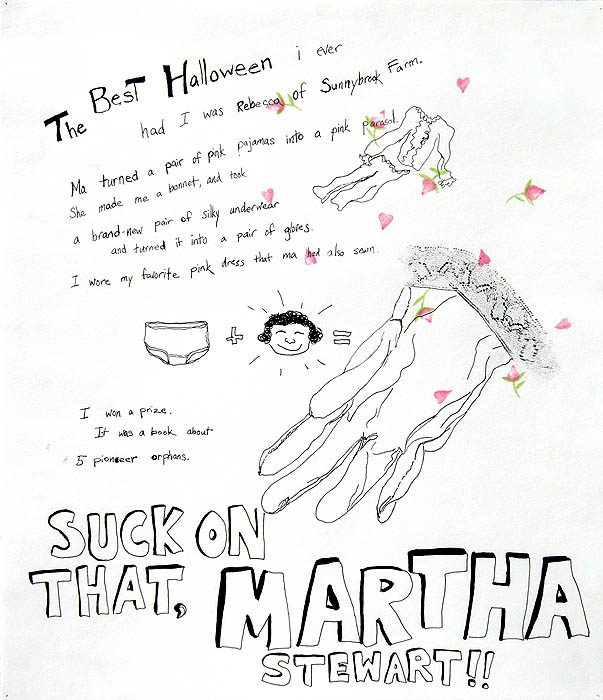 The Best Halloween i ever
had I was Rebecca of Sunnybrook Farm.
Ma turned a pair of pink pajamas into a pink parasol.
She made me a bonnet, and took
a brand-new pair of silky underwear
and turned it into a pair of gloves.
I wore my favorite pink dress that ma had also sewn.
+ =
I won a prize.
It was a book about
5 pioneer orphans.
SUCK ON
THAT, MARTHA
STEWART!!